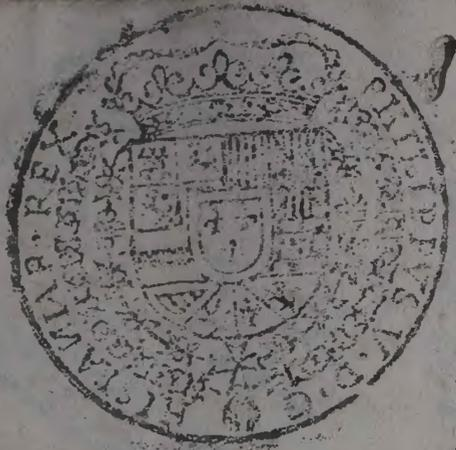 PHILIPPVS·V·D·G·
HISPANIAR·REX·